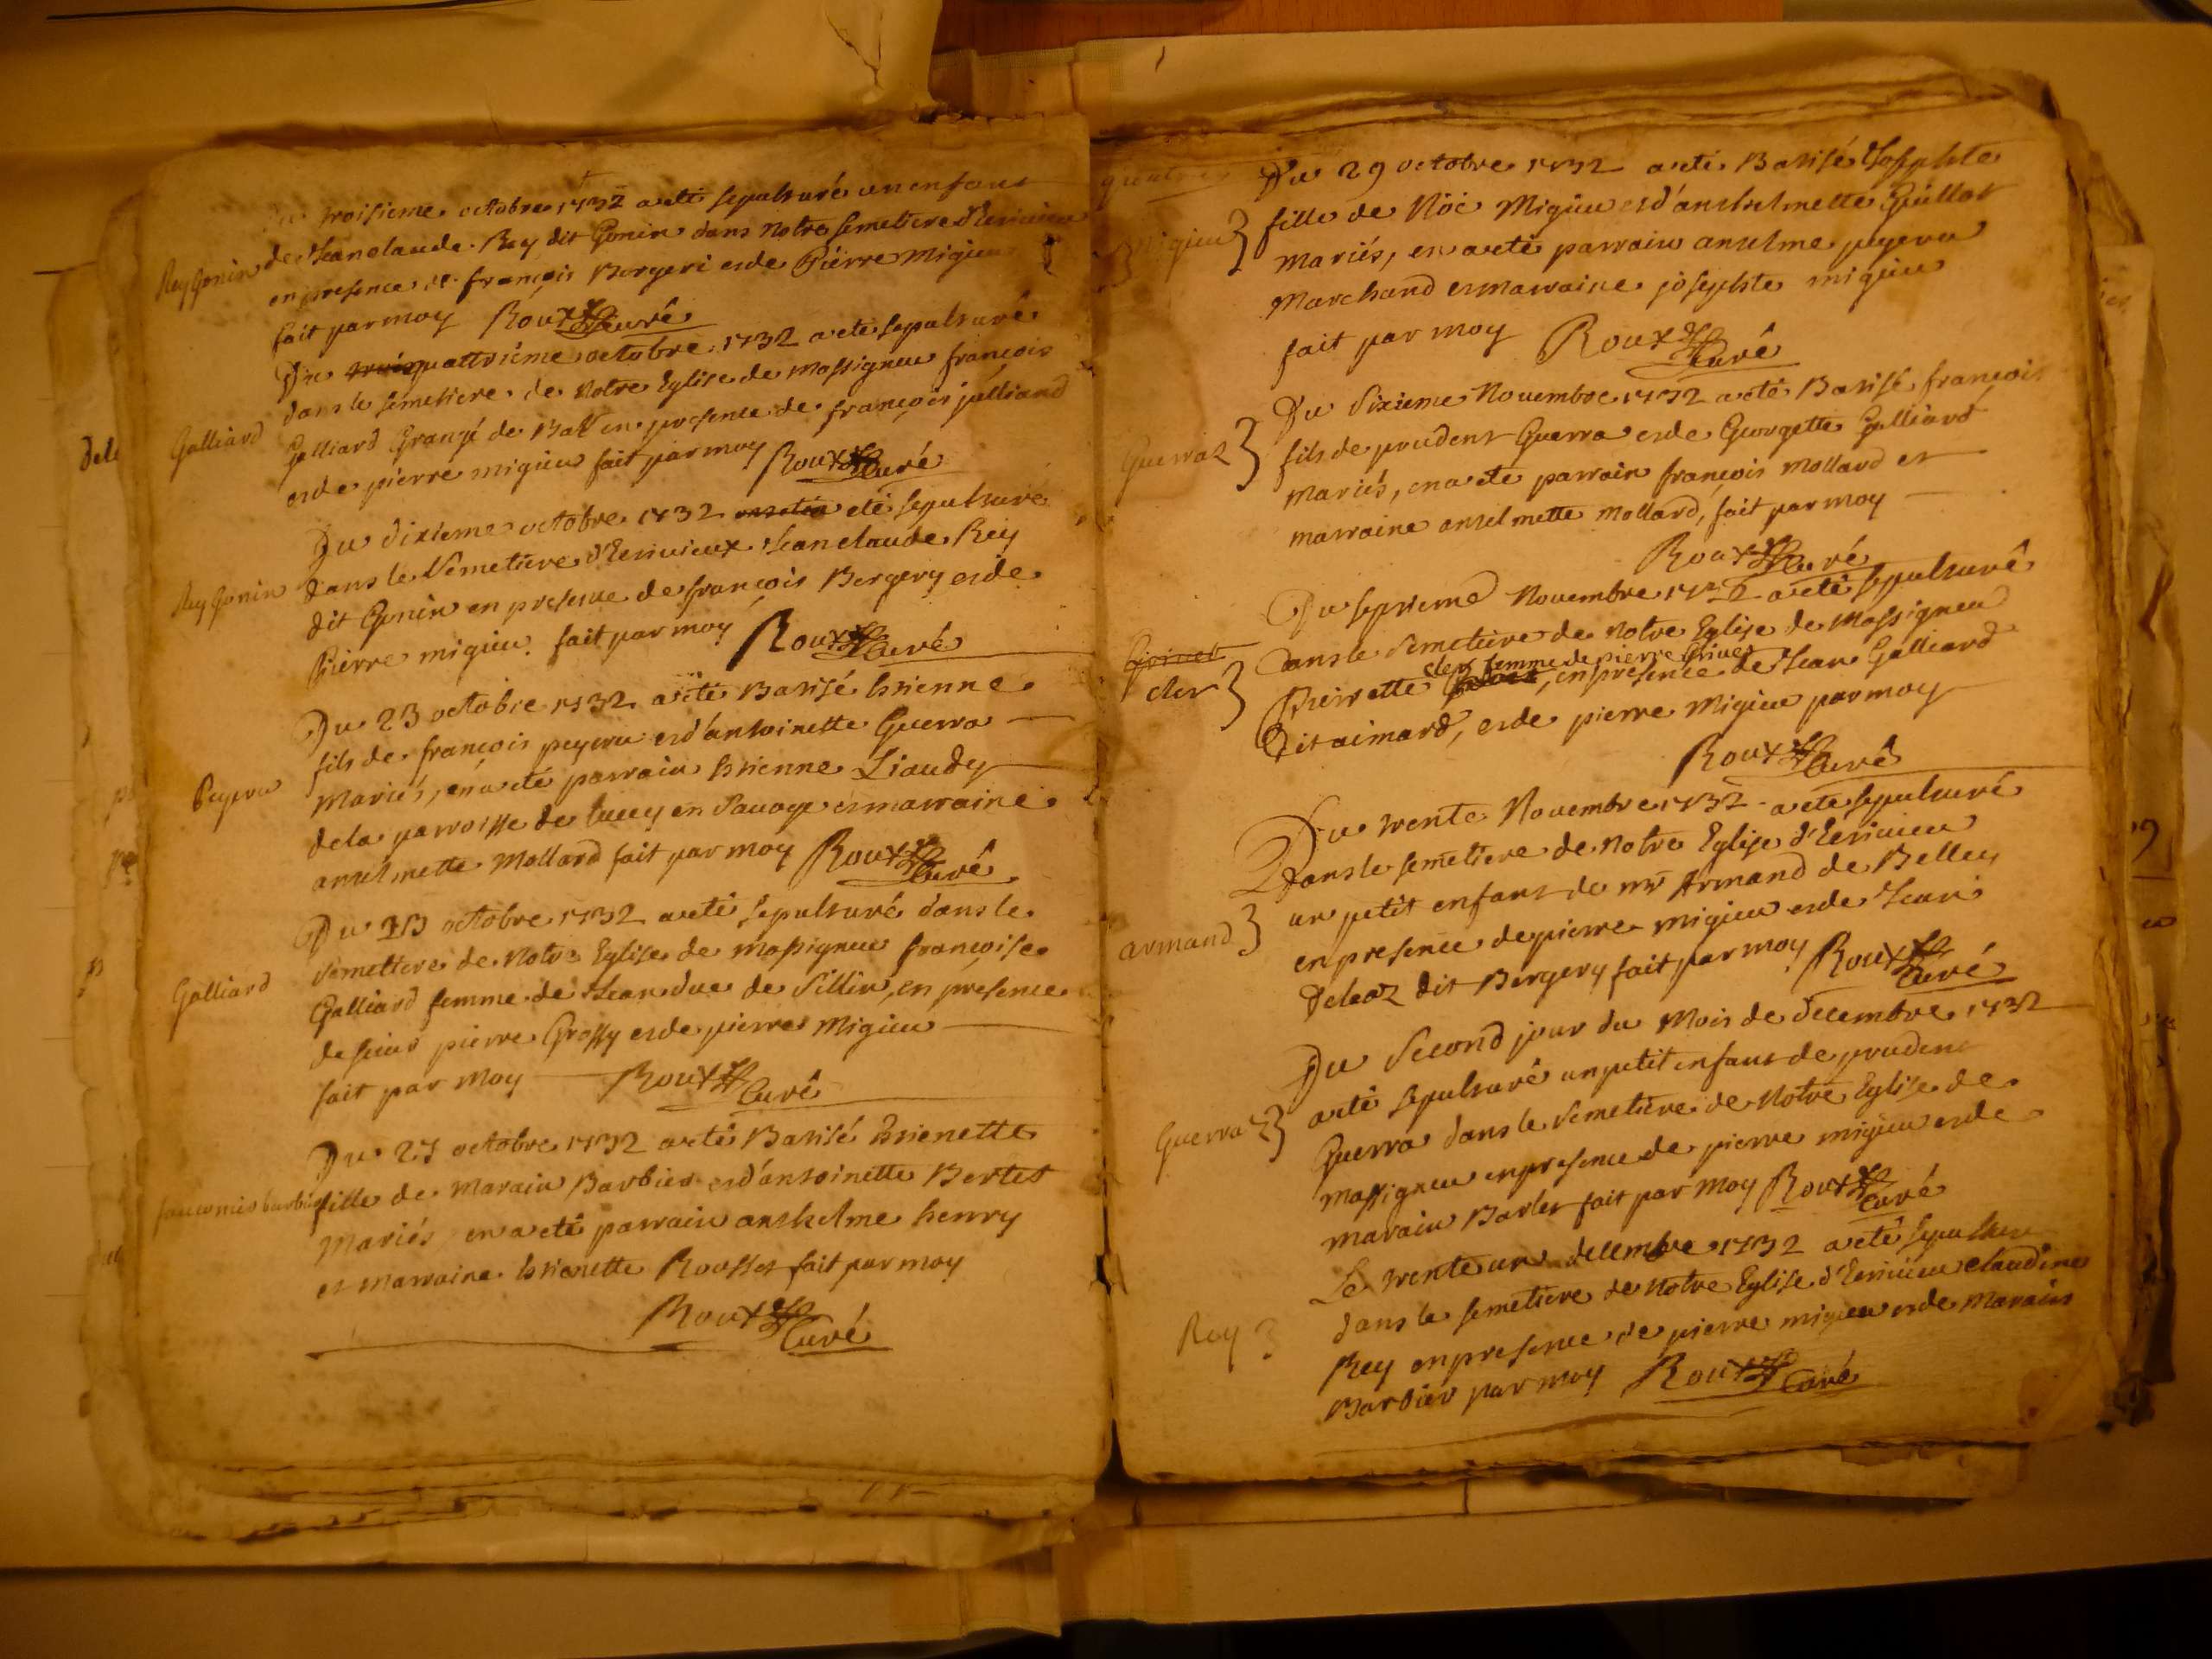 troisieme octobre 1732 a eté sepulturé un enfant
Rey Gonin de Jean claude Rey dit Gonin dans notre semetiere
en presence de françois Borgeri et de Pierre Migieu
fait par moy Roux Curé
Du quattrieme octobre 1732 a eté sepulturé
dans le semetiere de notre Eglise de Massigneu françois
Galliard Galliard Grangé de en presence de françois julliand
et de pierre migieu fait par moy Roux Curé
Du dixieme octobre 1732 eté sepulturé
Rey Gonin dans le semetiere Jean claude Rey
dit Gonin en presence de françois Bergery et de
Pierre migieu fait par moy Roux Curé
Du 23 octobre 1732 a eté Batisé Estienne
fils de françois peyeru et d'antoinette Guerra
Peyeru Mariés, en a eté parrain Estienne Liaudy
de la parroisse de lucey en Savoye et marraine
anselmette Mollard fait par moy Roux Curé
Du octobre 1732 a eté sepulturé dans le
semettiere de Notre Eglise de massigneu françoise
Galliard Galliard femme de Jean duc de Sillin, en presence
de sieur pierre Grossy et de pierre Migieu
fait par Moy Roux Curé
Du 27 octobre 1732 a eté Batisé Estienette
fille de Marain Barbier et d'antoinette Bertet
Mariés en a eté parrain anthelme henry
et marraine Estienette Rousset fait par moy
Roux Curé
Du 29 octobre 1732 a eté Batisé Josephte
Migieu fille de Nöé Migieu et d'anthelmette Guillot
mariés, en a eté parrain anselme peyeru
Marchand et marraine josephte migieu
fait par moy Roux Curé
Du Sixieme Novembre 1732 a eté Batisé françois
Guerraz fils de prudent Guerra et de Georgette Galliard
mariés, en a eté parrain françois mollard et
marraine anselmette mollard, fait par moy
Roux Curé
Du septieme Novembre a eté sepulturé
dans le semetiere de notre Eglise de Massigneu
cler femme de pierre
cler Pierrette, en presence de Jean Galliard
dit aimard, et de pierre Migieu par moy
Roux Curé
Du trente Novembre 1732 a eté sepulturé
Dans le semetiere de Notre Eglise
un petit enfant de mr Armand de Belley
armand en presence de pierre migieu et de Jean
Delaoz dit Bergery fait par moy Roux Curé
Du Second jour du Mois de Decembre 1732
a eté sepulturé un petit enfant de prudent
Guerraz Guerra dans le semetiere de Notre Eglise de
massigneu en presence de pierre migieu et de
marain fait par moy Roux Curé
Le trente un decembre 1732 a eté
dans le semetiere de Notre Eglise claudine
Rey Rey en presence de pierre migieu et de marain
Barbier par moy Roux Curé